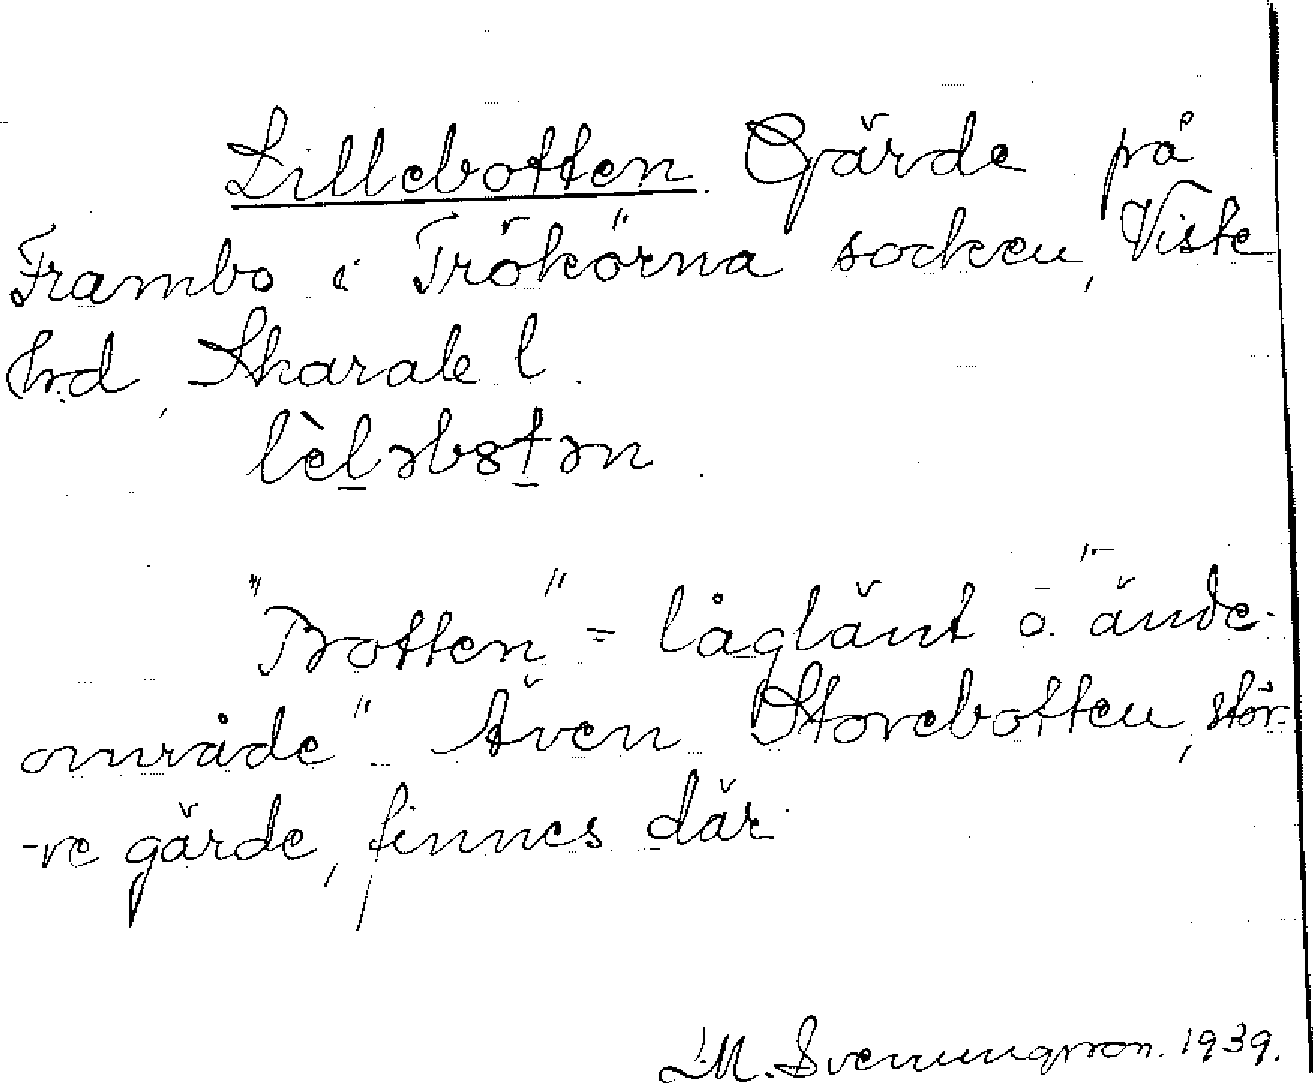 Lillebotten. Gärde på
Frambo i Trökörna socken, Viste
hrd, Skarab. l.
lèl̠əbɵt̠ən.
"Botten" = låglänt o. "ände-
område". Även Storebotten, stör-
-re gärde, finnes där.
L.M. Svenungsson. 1939.